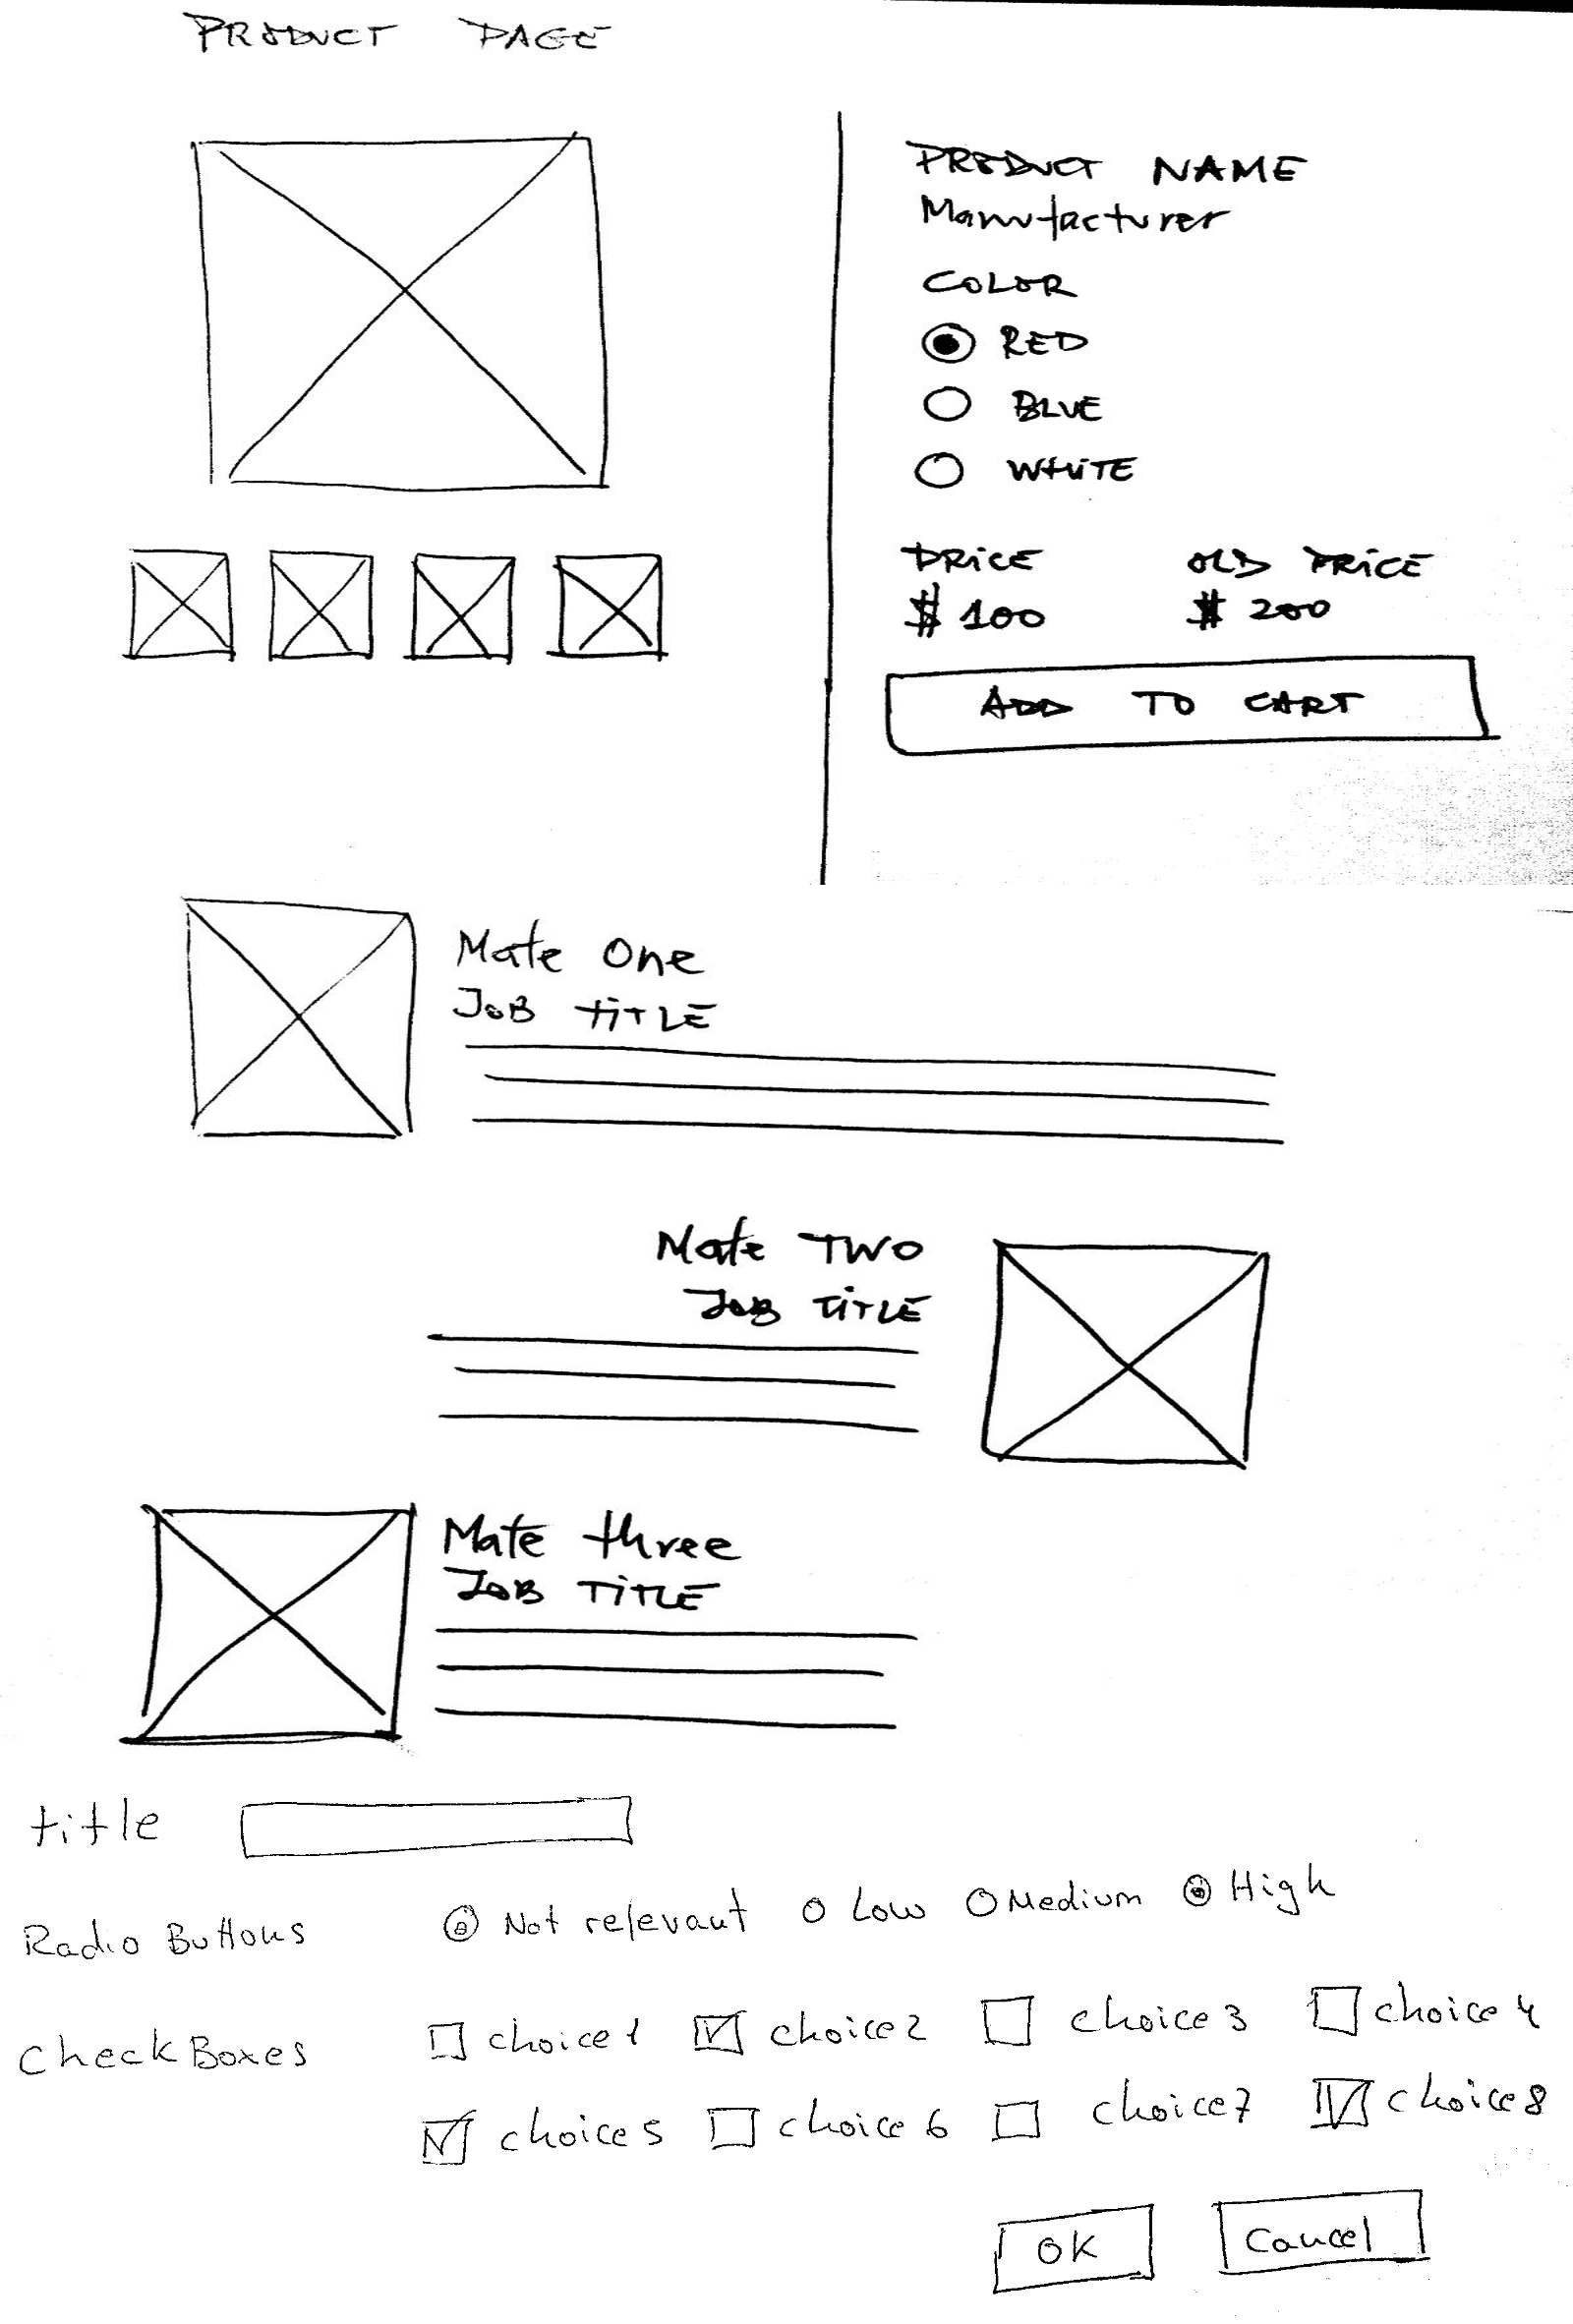 PRODUCT PAGE
PRODUCT NAME
Manufacturer
COLOR
RED
BLUE
WHITE
PRICE OLD PRICE
$ 100 $ 200
ADD TO CART
Mate One
JOB TITLE
Mate TWO
JOB TITLE
Mate three
JOB TITLE
title
Radio Buttons Not relevant Low Medium High
CheckBoxes choice1 choice2 choice3 choice4
choice5 choice6 choice7 choice8
OK Cancel